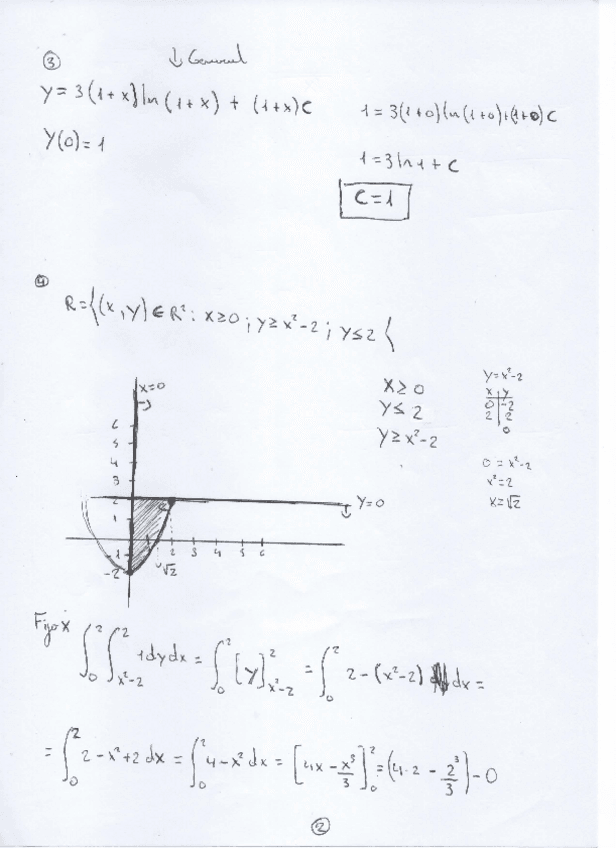 ③ ↓ General
y = 3(1+x) ln(1+x) + (1+x)C
1 = 3(1+0) ln(1+0) + (1+0)C
y(0) = 1
1 = 3 ln 1 + C
C = 1
④
R = {(x, y) ∈ R² : x ≥ 0 ; y ≥ x² - 2 ; y ≤ 2 {
x = 0
6
5
4
3
2
1
-1
-2
2 3 4 5 6
√2
y = 0
x ≥ 0
y ≤ 2
y ≥ x² - 2
y = x² - 2
x | y
0 | -2
2 | 2
0
0 = x² - 2
x² = 2
x = √2
Fijo x
∫₀² ∫_{x²-2}^{2} 1 dy dx = ∫₀² [y]_{x²-2}^{2} = ∫₀² 2 - (x² - 2) dx =
= ∫₀² 2 - x² + 2 dx = ∫₀² 4 - x² dx = [4x - x³/3]₀² = (4·2 - 2³/3) - 0
②